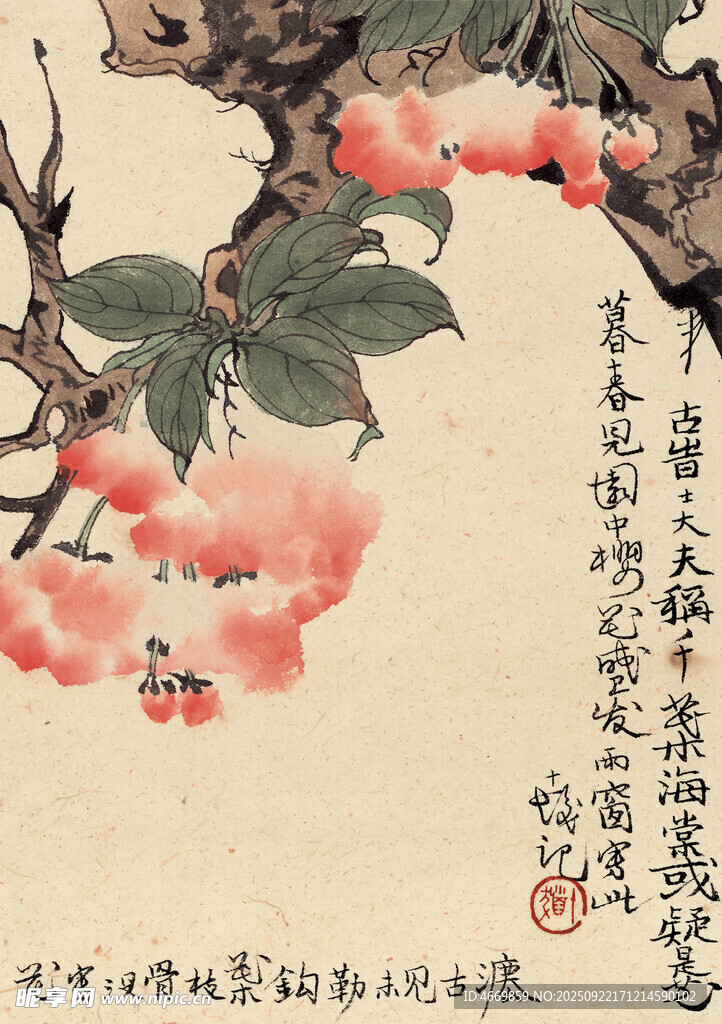 古昔士大夫稱千葉海棠或疑是也
暮春見園中櫻花盛发雨窗寫此
記
花寫没骨枝葉鈎勒未见古
昵享网 www.nipic.cn
ID:4669859 NO:20250922171214590102